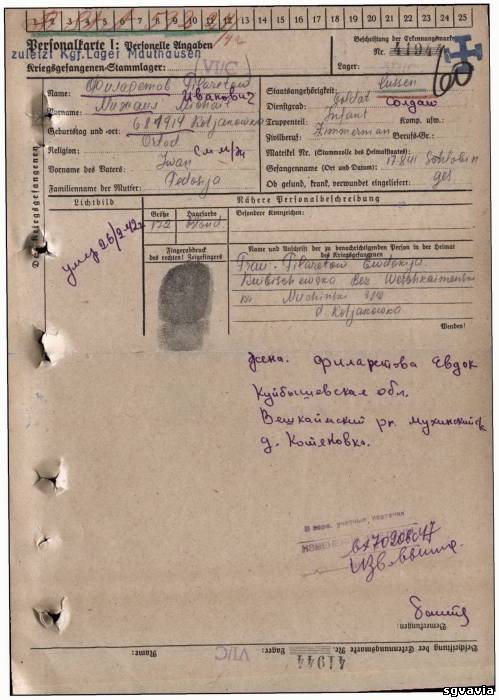 1 2 3 4 5 6 7 8 9 10 11 12 13 14 15 16 17 18 19 20 21 22 23 24 25
Personalkarte I: Personelle Angaben
Beschriftung der Erkennungsmarke
zuletzt Kgf. Lager Mauthausen
Nr. 41944
Kriegsgefangenen-Stammlager: VI/C
Lager:
Des Kriegsgefangenen
Name: Филаретов Filaretow
Иванович
Staatsangehörigkeit: Russen
Vorname: Михаил Michail
Dienstgrad: Soldat Солдат
Truppenteil: Infant Komp. usw.:
Geburtstag und -ort: 6.8.1914 Kotjakowka
Zivilberuf: Zimmerman Berufs-Gr.:
Religion: Ortod
Matrikel Nr. (Stammrolle des Heimatstaates)
Vorname des Vaters: Iwan
Gefangennahme (Ort und Datum): 17.8.41
Familienname der Mutter: Fedosja
Ob gesund, krank, verwundet eingeliefert: ges
Lichtbild
Nähere Personalbeschreibung
Größe Haarfarbe Besondere Kennzeichen:
172 blond
умер 26/2-42г
Fingerabdruck
des rechten! Zeigefingers
Name und Anschrift der zu benachrichtigenden Person in der Heimat
des Kriegsgefangenen
Frau. Filaretow Ewdokija
d Kotjakowka
Wenden!
жена. Филаретова Евдок
Куйбышевская обл.
Вешкаймский рн. Мухинский с/с
д. Котяковка.
Bemerkungen
Beschriftung der Erkennungsmarke Nr. 41944 Lager: VI/C Name:
sgvavia